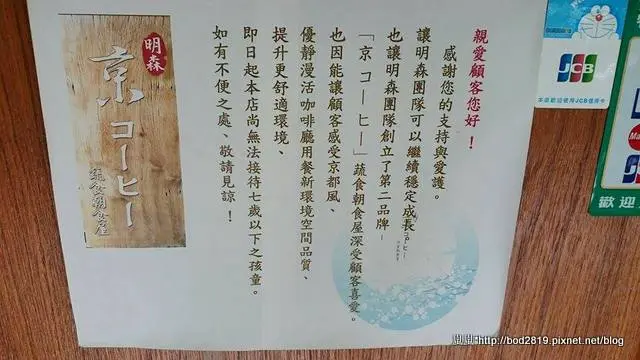 親愛顧客您好！
感謝您的支持與愛護。
讓明森團隊可以繼續穩定成長，
也讓明森團隊創立了第二品牌－
「京コーヒー」蔬食朝食屋深受顧客喜愛。
也因能讓顧客感受京都風、
優靜漫活咖啡廳用餐新環境空間品質、
提升更舒適環境、
即日起本店尚無法接待七歲以下之孩童。
如有不便之處、敬請見諒！
明森
京コーヒー
蔬食朝食屋
JCB
本店歡迎使用JCB信用卡
JCB
歡迎
http://bod2819.pixnet.net/blog